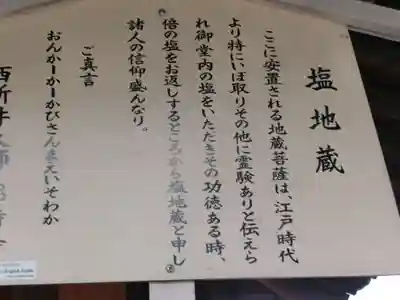 塩地蔵
ここに安置される地蔵菩薩は、江戸時代
より特にいぼ取りその他に霊験ありと伝えら
れ御堂内の塩をいただきその功徳ある時、
倍の塩をお返しするところから塩地蔵と申し
諸人の信仰盛んなり。
ご真言
おんかーかーかびさんまえいそわか
西新井大師